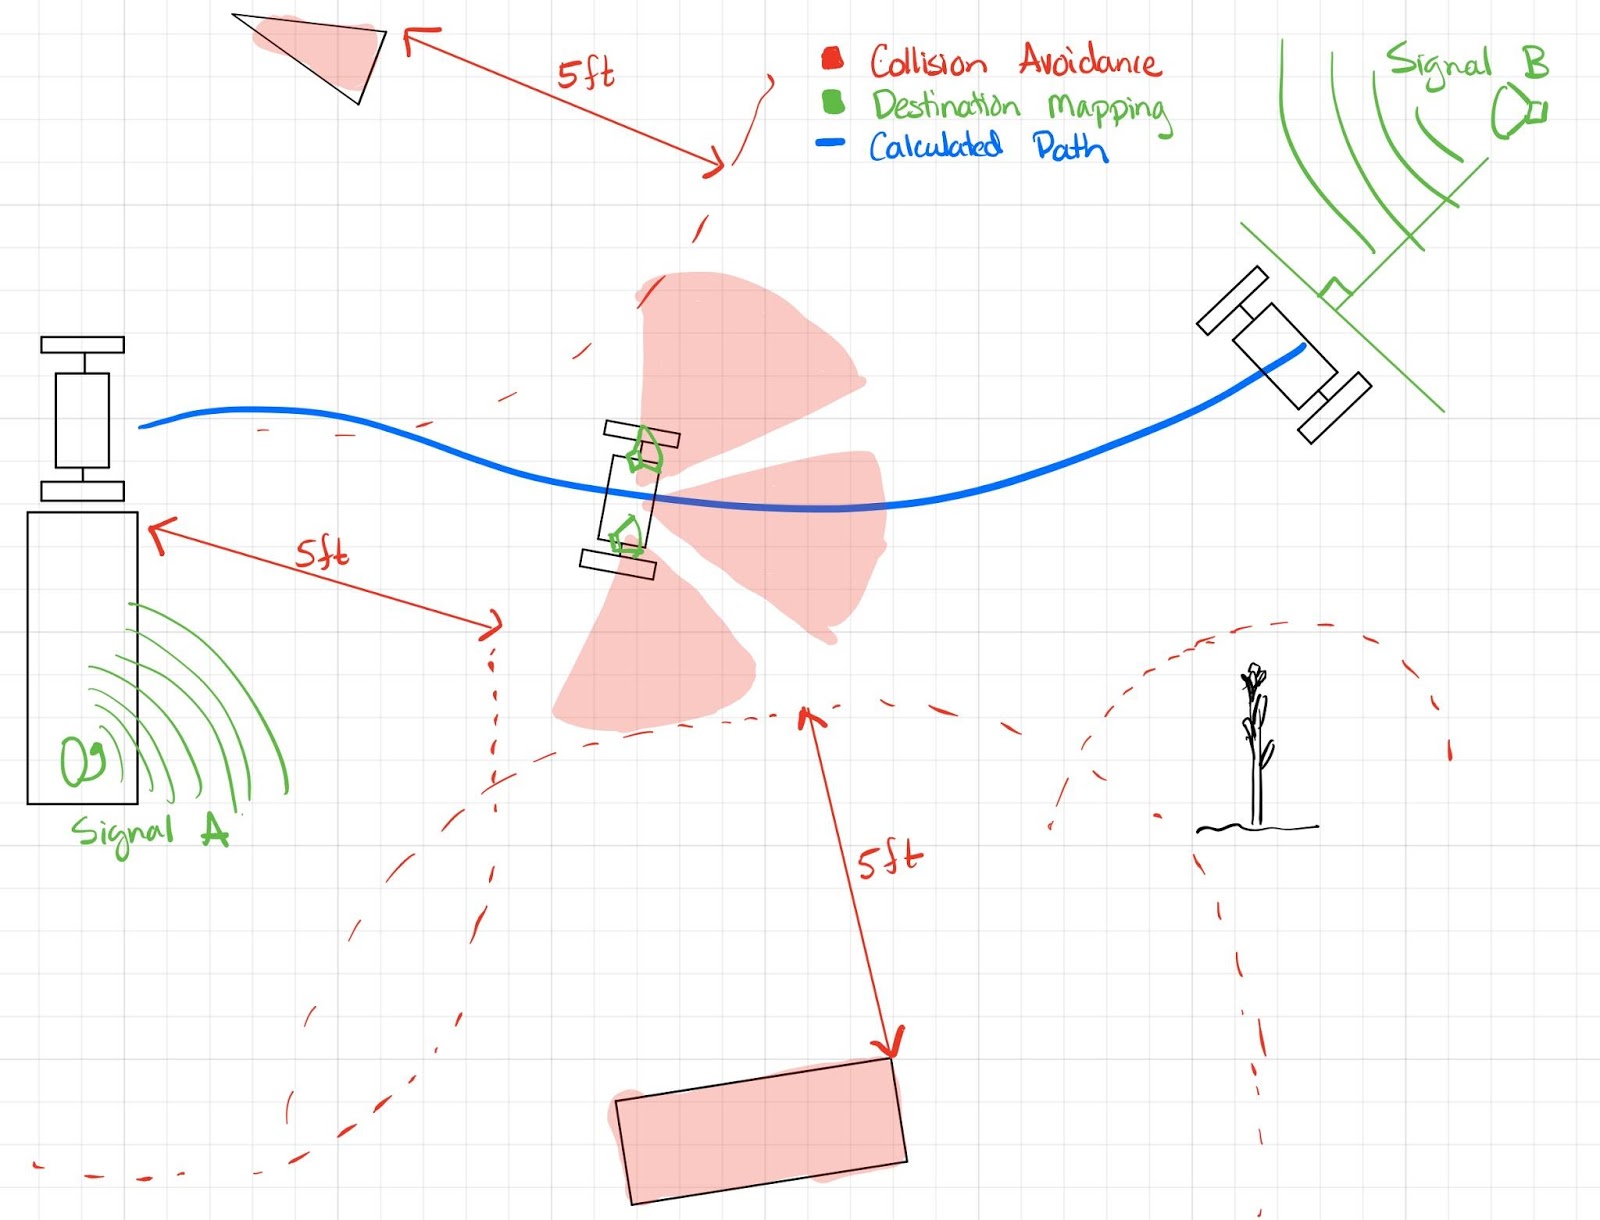 5ft
Collision Avoidance
Destination Mapping
Calculated Path
Signal B
5ft
Signal A
5ft